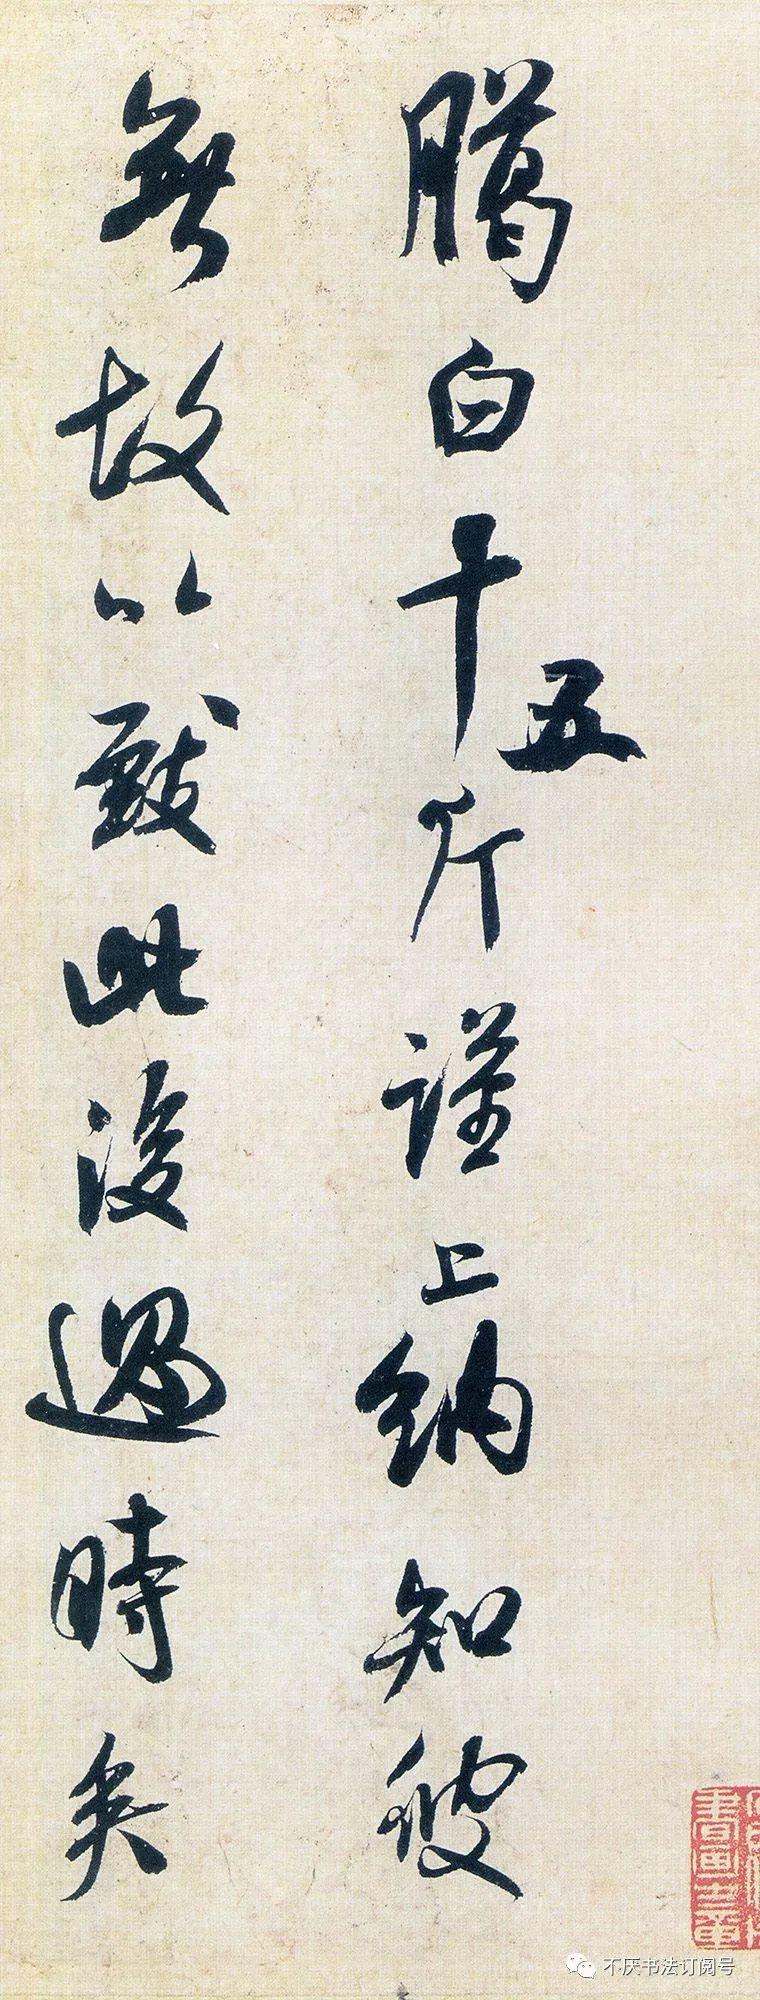 臈白十五斤謹上納知彼
無故以獻此後過時矣
書畫之章
不厌书法订阅号